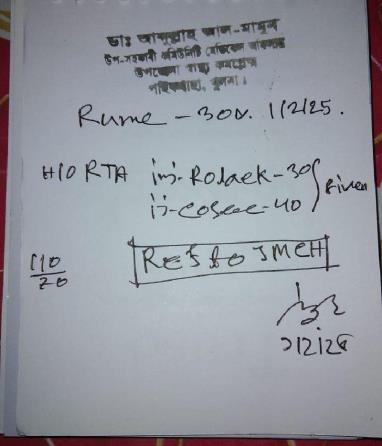 ডাঃ আব্দুল্লাহ আল-মামুন
উপ-সহকারী কমিউনিটি মেডিকেল অফিসার
উপজেলা স্বাস্থ্য কমপ্লেক্স
পাইকগাছা, খুলনা।
Rume - 30y. 1/2/25.
H/O RTA inj. Rolack-30
inj-cosec-40 } Given
110/70
REF to JMCH